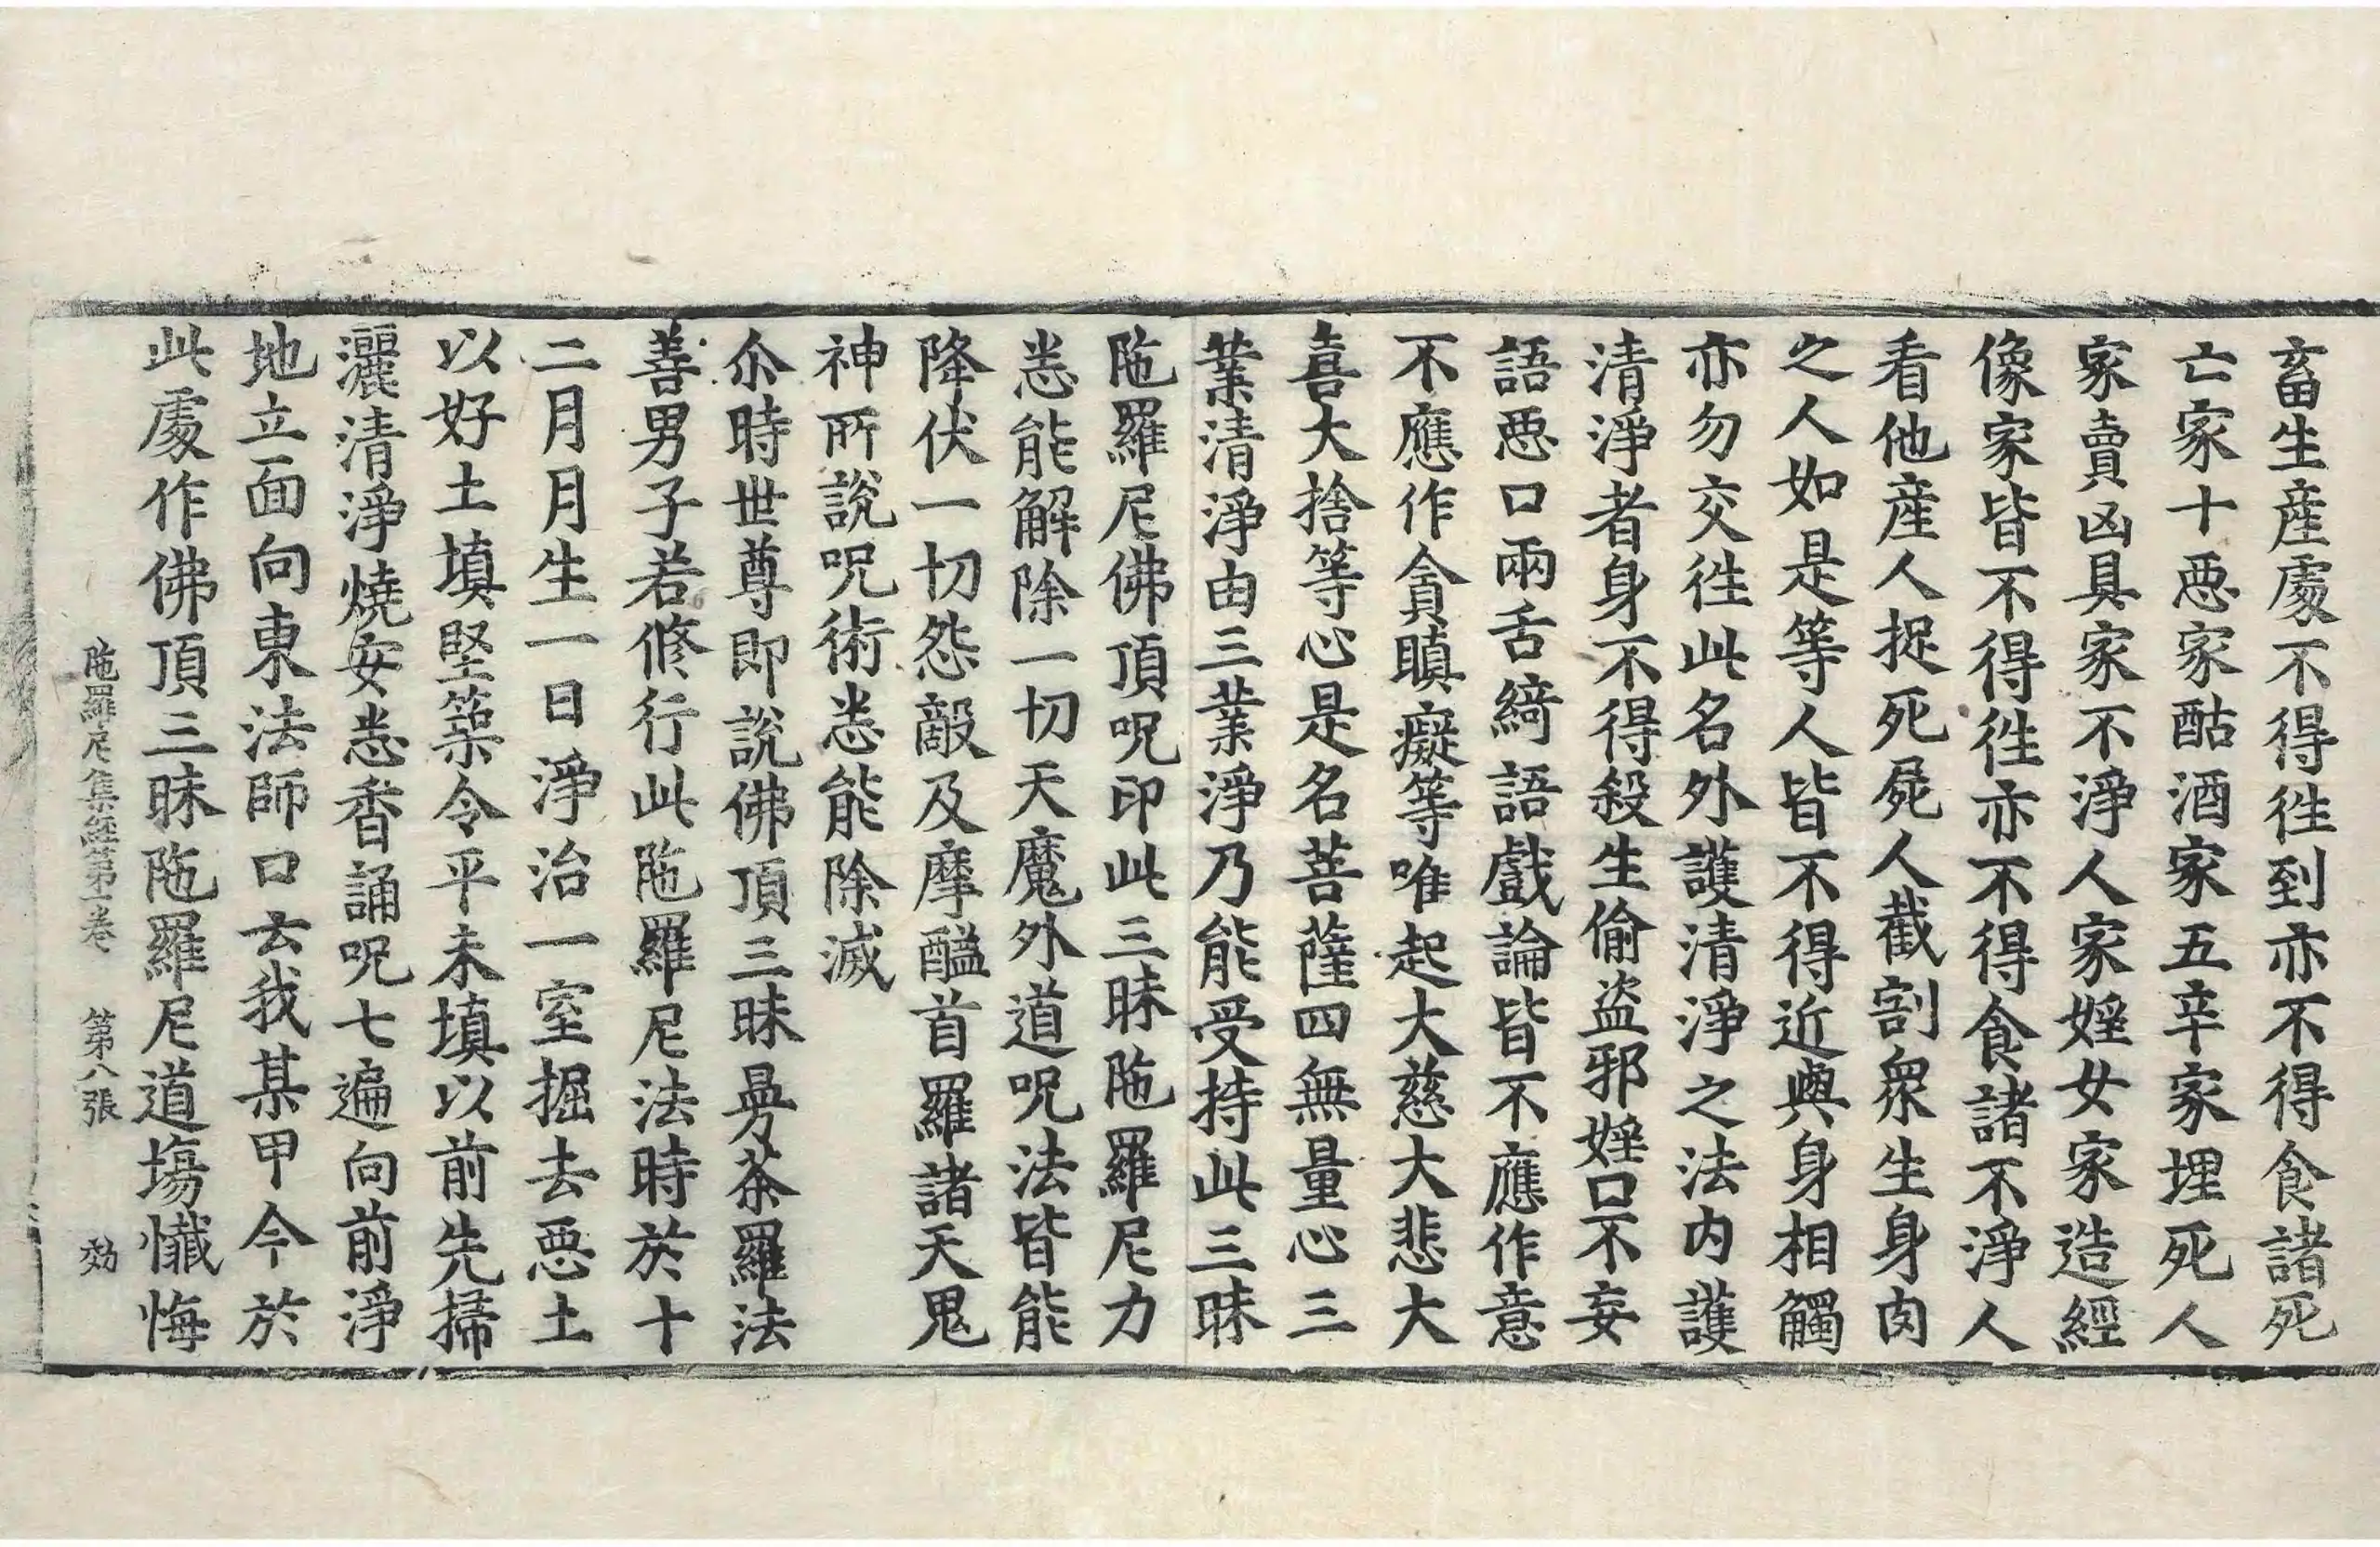 畜生産處不得徃到亦不得食諸死
亡家十惡家酤酒家五辛家埋死人
家賣凶具家不淨人家婬女家造經
像家皆不得徃亦不得食諸不淨人
看他産人捉死屍人截割衆生身肉
之人如是等人皆不得近與身相觸
亦勿交徃此名外護清淨之法内護
清淨者身不得殺生偷盗邪婬口不妄
語惡口兩舌綺語語戲論皆不應作意
不應作貪瞋癡等唯起大慈大悲大
喜大捨等心是名菩薩四無量心三
業清淨由三業淨乃能受持此三昧
陁羅尼佛頂呪印此三昧陁羅尼力
悉能解除一切天魔外道呪法皆能
降伏一切怨敵及摩醯首羅諸天鬼
神所說呪術悉能除滅
尒時世尊即說佛頂三昧曼荼羅法
善男子若修行此陁羅尼法時於十
二月月生一日淨治一室掘去惡土
以好土填堅築令平未填以前先掃
灑清淨燒安悉香誦呪七遍向前淨
地立面向東法師口云我某甲今於
此處作佛頂三昧陁羅尼道場懺悔
陁羅尼集經第一卷 第八張 効